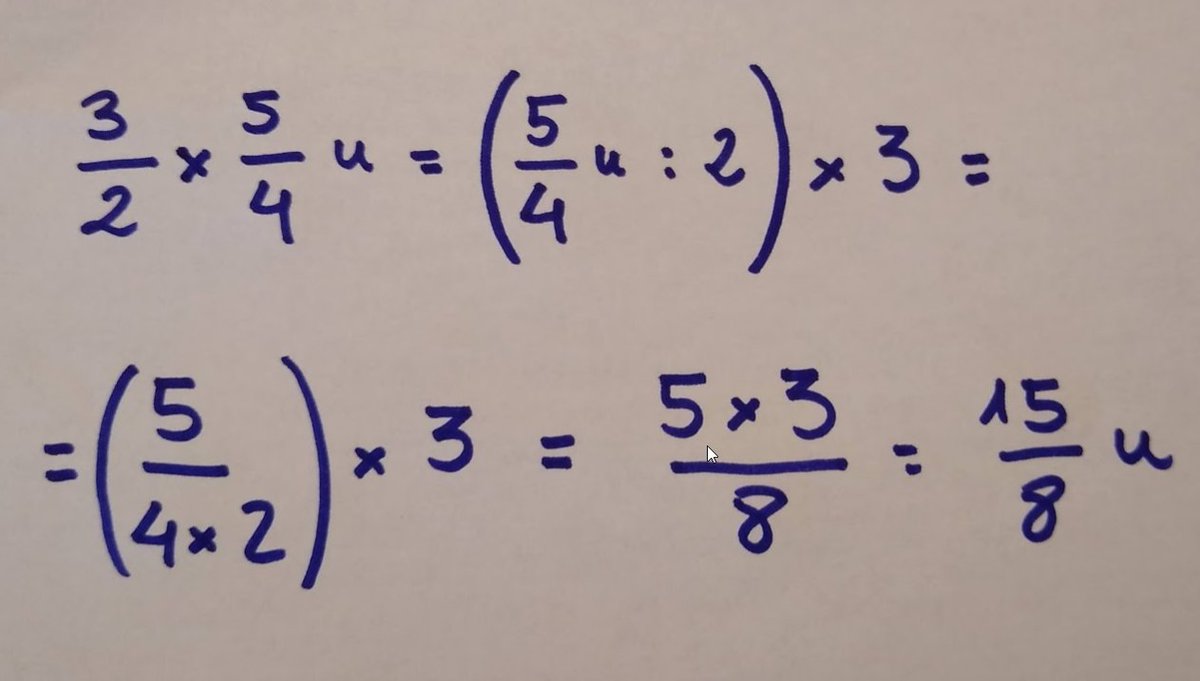 3/2 × 5/4 u = (5/4 u : 2) × 3 =
= (5/(4×2)) × 3 = (5×3)/8 = 15/8 u